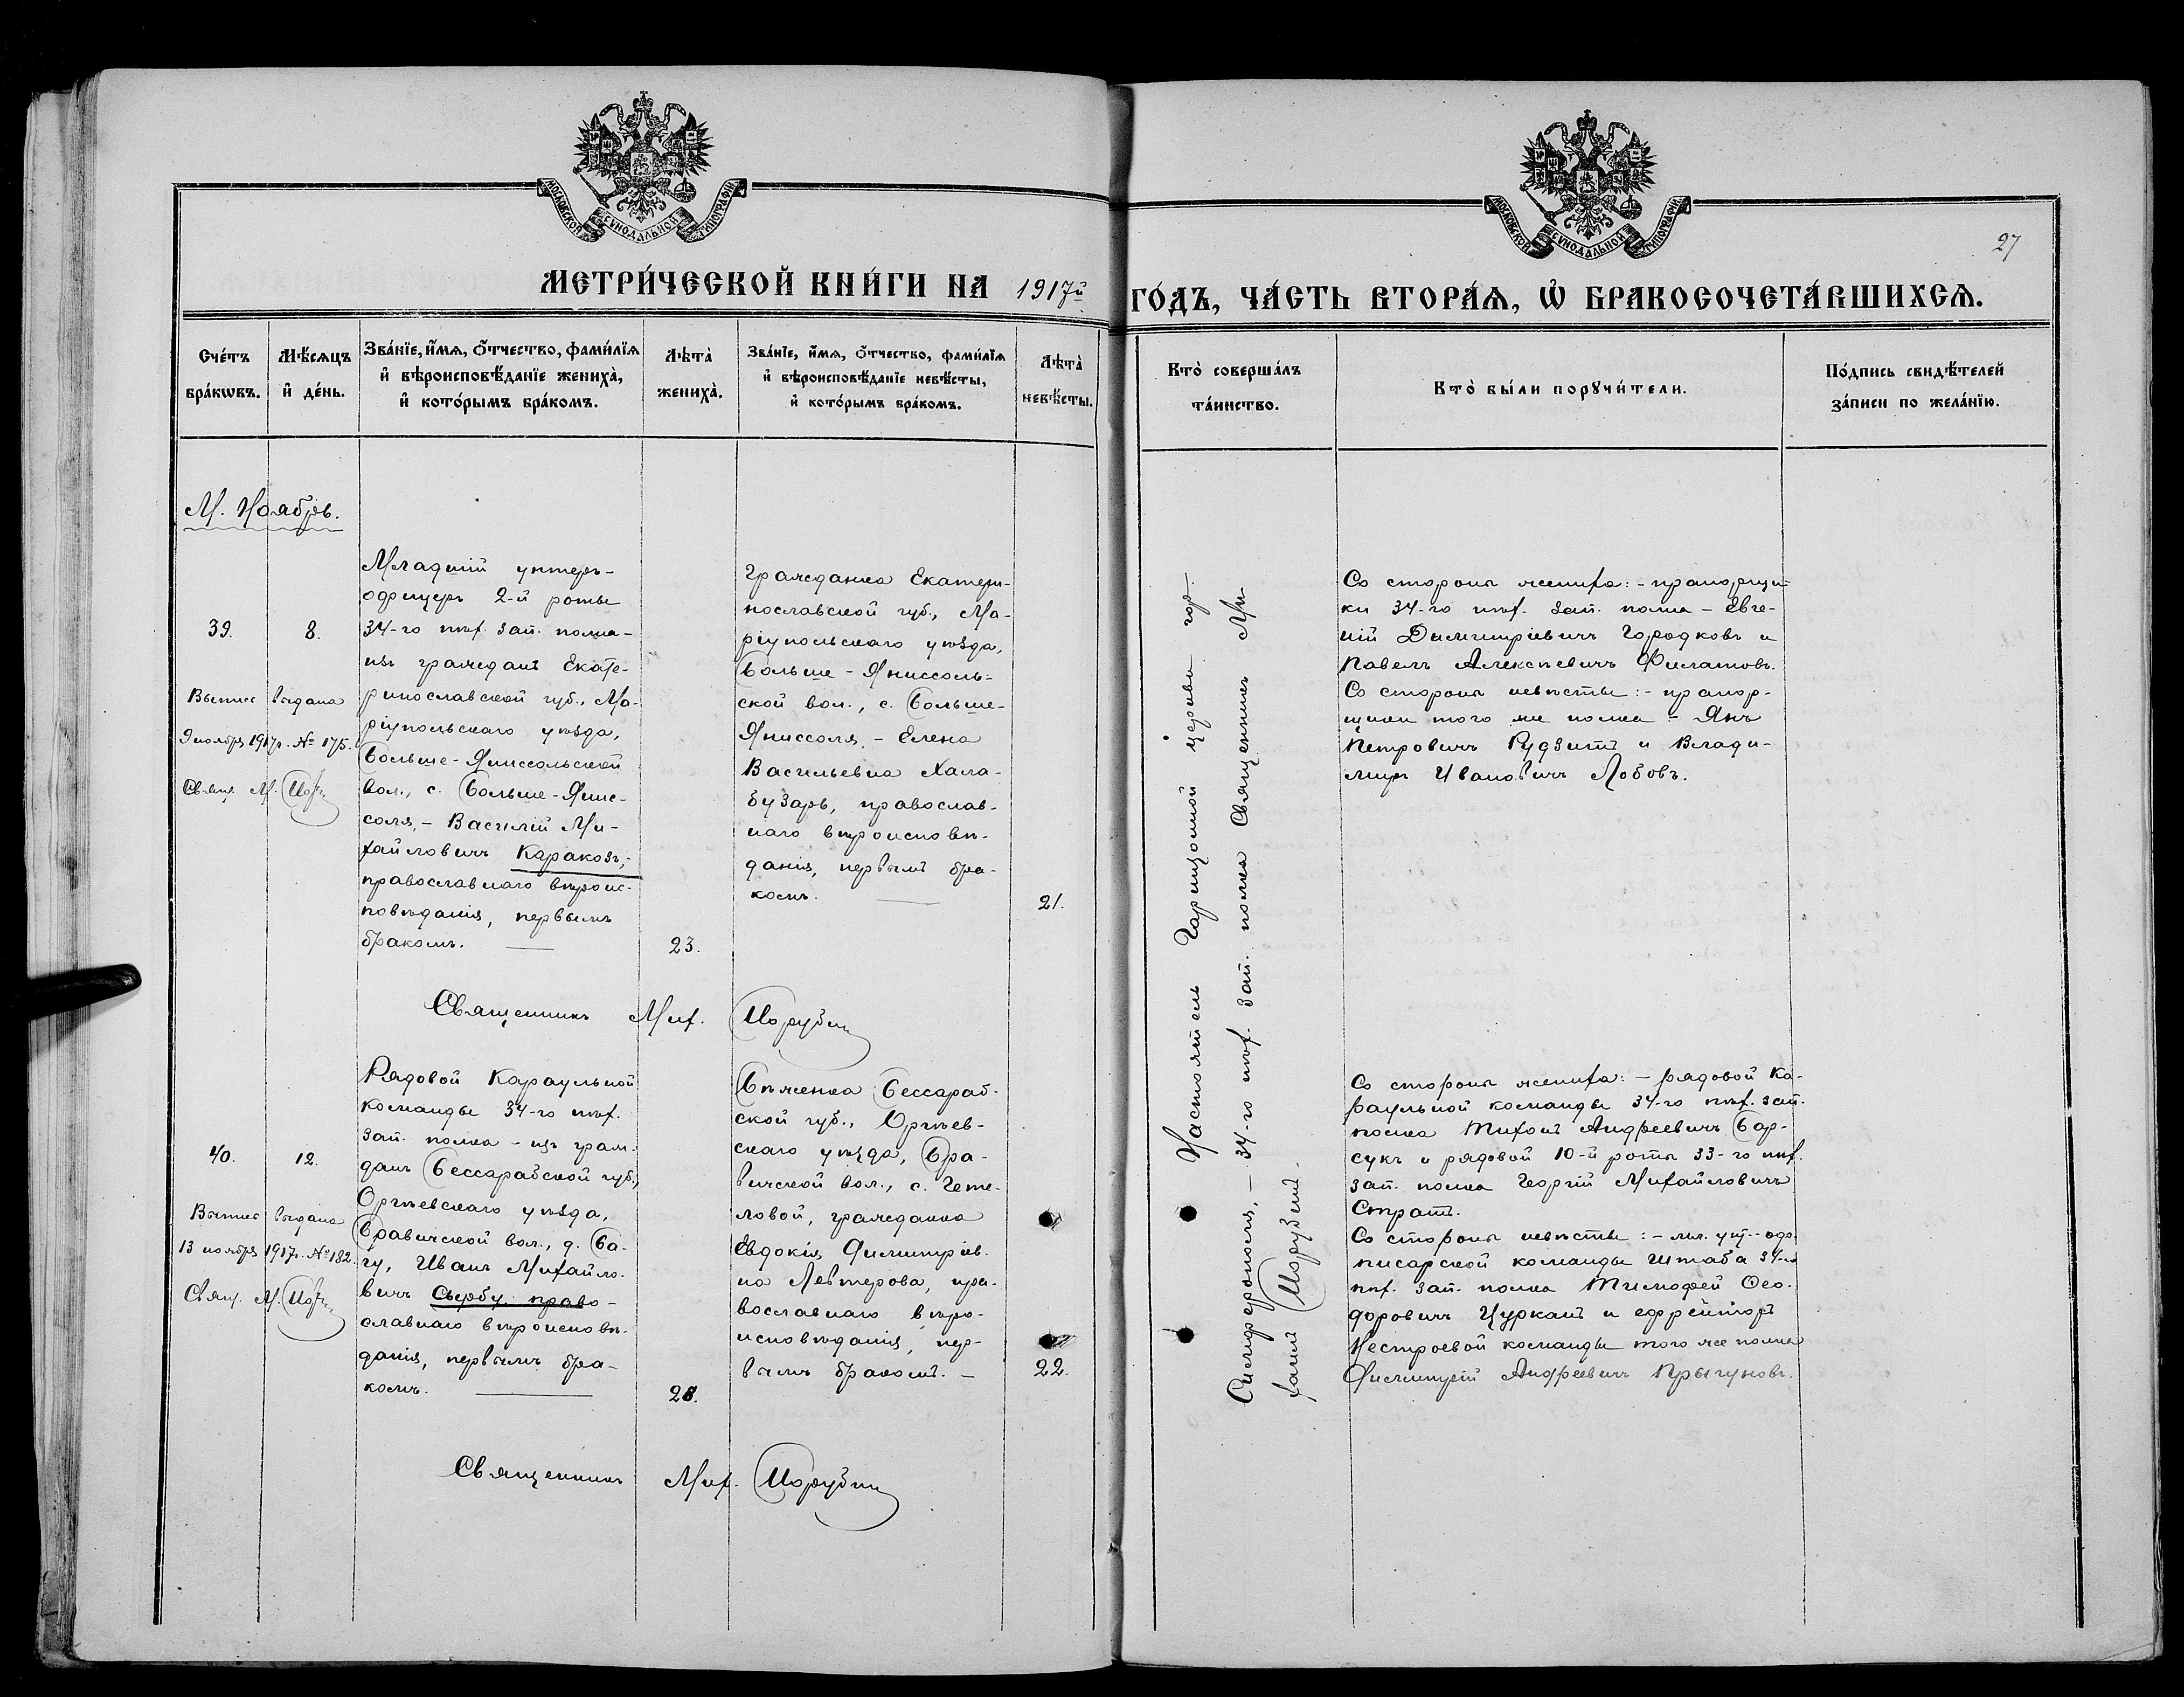 МОСКОВСКОЙ СУНОДАЛЬНОЙ ТИПОГРАФІИ
МОСКОВСКОЙ СУНОДАЛЬНОЙ ТИПОГРАФІИ
27
МЕТРИ́ЧЕСКОЙ КНИ́ГИ НА 1917й ГО́ДЪ, ЧА́СТЬ ВТОРА́Я, Ѡ҆ БРАКОСОЧЕТА́ВШИХСЯ.
Сче́тъ
бра́кѡвъ.
Мѣ́сяцъ
и҆ де́нь.
Зва́нїе, и҆́мя, ѻ҆́тчество, фами́лїя
и҆ вѣроисповѣ́данїе жениха̀,
и҆ кото́рымъ бра́комъ.
Лѣта̀
жениха̀.
Зва́нїе, и҆́мя, ѻ҆́тчество, фами́лїя
и҆ вѣроисповѣ́данїе невѣ́сты,
и҆ кото́рымъ бра́комъ.
Лѣта̀
невѣ́сты.
Кто̀ соверша́лъ
та́инство.
Кто̀ бы́ли порꙋчи́тели.
По́дпись свидѣ́телей
за́писи по жела́нїю.
М. Ноябрь.
39.
8.
Выпись выдана
9 ноября 1917г. № 175.
Свящ. М.
Младшій унтеръ-
офицеръ 2-й роты
34-го пѣх. зап. полка -
изъ гражданъ Екате-
ринославской губ., Ма-
ріупольскаго уѣзда,
Больше-Янисольской
вол., с. Больше-Янис-
соля, - Василій Ми-
хайловичъ Каракозъ,-
православнаго вѣроис-
повѣданія, первымъ
бракомъ.
23.
Гражданка Екатери-
нославской губ., Ма-
ріупольскаго уѣзда,
Больше-Яниссоль-
ской вол., с. Больше-
Яниссоля, - Елена
Васильевна Хала-
бузарь, православ-
наго вѣроисповѣ-
данія, первымъ бра-
комъ.
21.
Священникъ Миѳ.
Со стороны жениха: - прапорщи-
ки 34-го пѣх. зап. полка - Евге-
ній Димитріевичъ Городковъ и
Павелъ Алексѣевичъ Филатовъ.
Со стороны невѣсты: - прапор-
щики того же полка - Янъ
Петровичъ Рудзитъ и Влади-
миръ Ивановичъ Лобовъ.
Настоятель Гарнизонной церкви гор.
Симферополя, - 34-го пѣх. зап. полка Священникъ Ми-
40.
12.
Выпись выдана
13 ноября 1917г. № 182.
Свящ. М.
Рядовой Караульной
команды 34-го пѣх.
зап. полка - изъ граж-
данъ Бессарабской губ.,
Оргѣевскаго уѣзда,
Бравичской вол., д. Ба-
гу, Иванъ Михайло-
вичъ Сырбу, право-
славнаго вѣроисповѣ-
данія, первымъ бра-
комъ.
28.
Бѣженка Бессараб-
ской губ., Оргѣев-
скаго уѣзда, Бра-
вичской вол., с. Гете-
ловой, гражданка
Евдокія Димитріев-
на Левтерова, пра-
вославнаго вѣро-
исповѣданія, пер-
вымъ бракомъ. -
22.
Священникъ Миѳ.
Со стороны жениха: - рядовой Ка-
раульной команды 34-го пѣх. зап.
полка Тихонъ Андреевичъ Бор-
сукъ и рядовой 10-й роты 33-го пѣх.
зап. полка Георгій Михайловичъ
Стратъ.
Со стороны невѣсты: - мл. унт.-оф.
писарской команды Штаба 34-го
пѣх. зап. полка Тимофей Ѳео-
доровичъ Цурканъ и ефрейторъ
Нестроевой команды того же полка
Димитрій Андреевичъ Прыгуновъ.